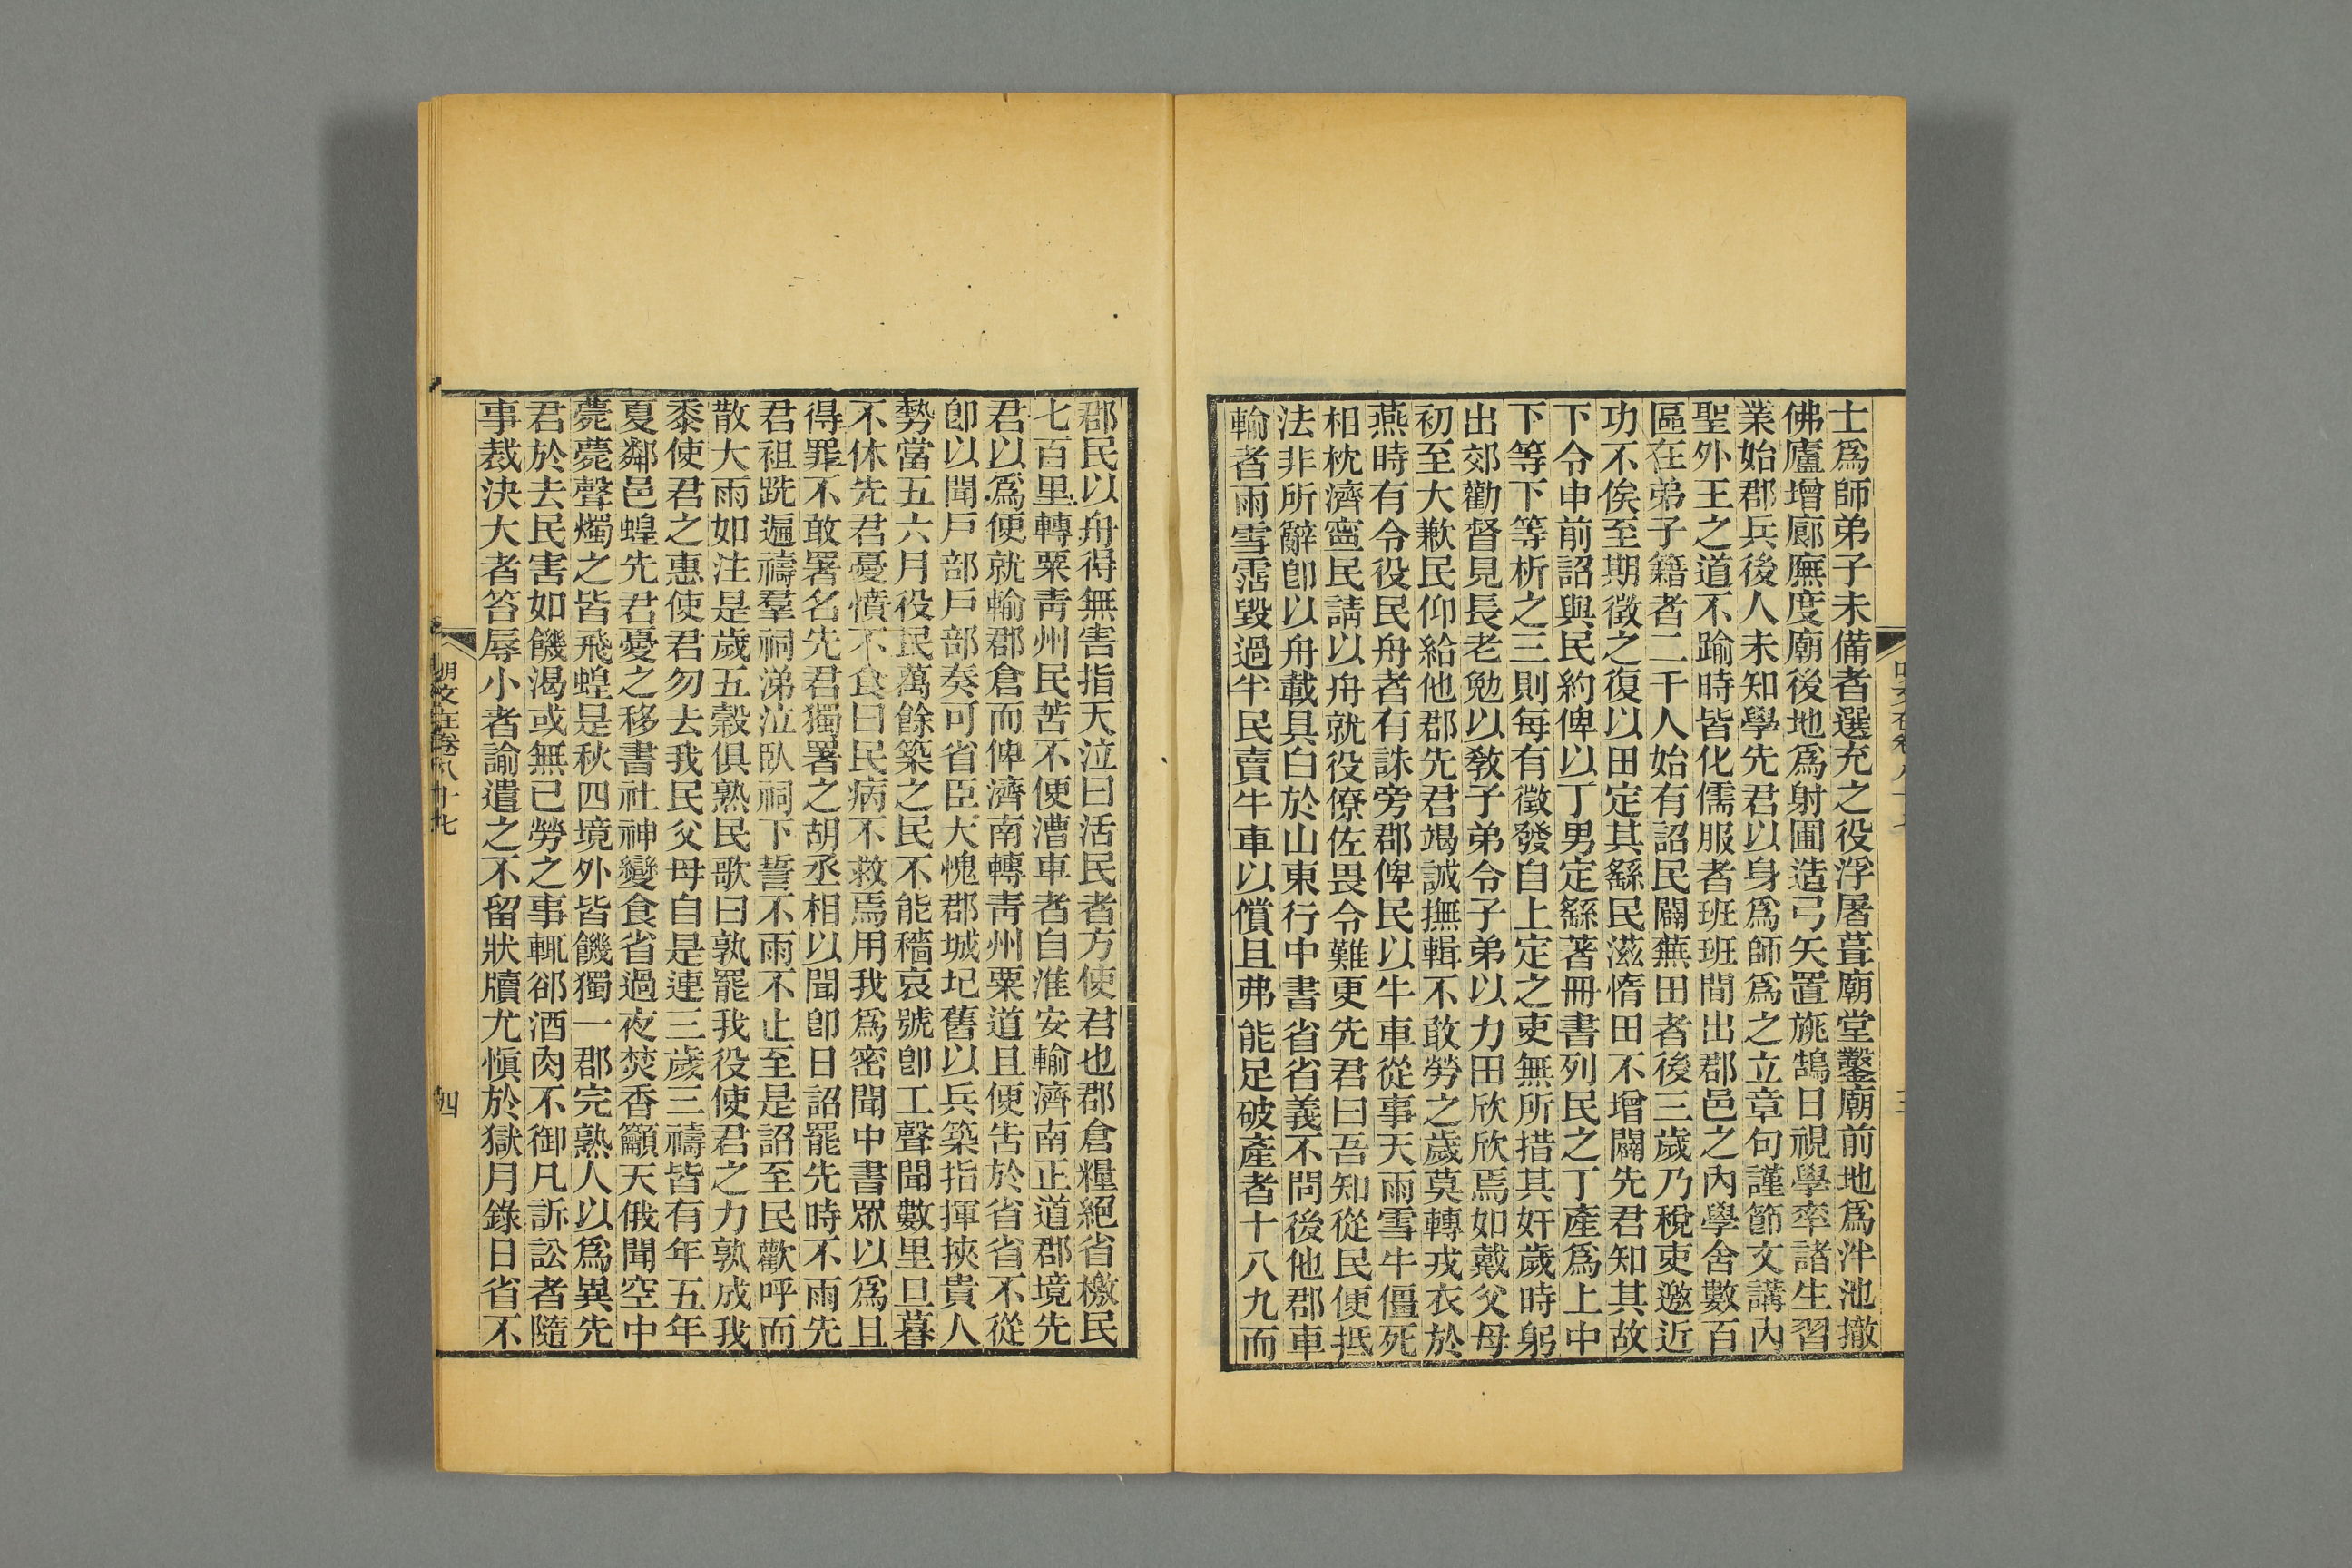 士爲師弟子未備者選充之役浮屠葺廟堂鑿廟前地爲泮池撤
佛廬增廊廡度廟後地爲射圃造弓矢置旐鵠日視學率諸生習
業始郡兵後人未知學先君以身爲師爲之立章句謹節文講內
聖外王之道不踰時皆化儒服者班班間出郡邑之內學舍數百
區在弟子籍者二千人始有詔民闢蕪田者後三歲乃稅吏邀近
功不俟至期徵之復以田定其繇民滋惰田不增闢先君知其故
下令申前詔與民約俾以丁男定繇著冊書列民之丁產爲上中
下等下等析之三則每有徵發自上定之吏無所措其奸歲時躬
出郊勸督見長老勉以敎子弟令子弟以力田欣欣焉如戴父母
初至大歉民仰給他郡先君竭誠撫輯不敢勞之歲莫轉戎衣於
燕時有令役民舟者有誅旁郡俾民以牛車從事天雨雪牛僵死
相枕濟寧民請以舟就役僚佐畏令難更先君曰吾知從民便抵
法非所辭卽以舟載具白於山東行中書省省義不問後他郡車
輸者雨雪霑毀過半民賣牛車以償且弗能足破產者十八九而
郡民以舟得無害指天泣曰活民者方使君也郡倉糧絕省檄民
七百里轉粟靑州民苦不便漕車者自淮安輸濟南正道郡境先
君以爲便就輸郡倉而俾濟南轉靑州粟道且便吿於省省不從
卽以聞戶部戶部奏可省臣大愧郡城圮舊以兵築指揮挾貴人
勢當五六月役民萬餘築之民不能穡哀號卽工聲聞數里旦暮
不休先君憂憤不食曰民病不救焉用我爲密聞中書眾以爲且
得罪不敢署名先君獨署之胡丞相以聞卽日詔罷先時不雨先
君祖跣遍禱羣祠涕泣臥祠下誓不雨不止至是詔至民歡呼而
散大雨如注是歲五穀俱熟民歌曰孰罷我役使君之力孰成我
黍使君之惠使君勿去我民父母自是連三歲三禱皆有年五年
夏鄰邑蝗先君憂之移書社神變食省過夜焚香籲天俄聞空中
薨薨聲燭之皆飛蝗是秋四境外皆饑獨一郡完熟人以爲異先
君於去民害如饑渴或無已勞之事輒郤酒肉不御凡訴訟者隨
事裁決大者笞辱小者諭遣之不留狀牘尤愼於獄月錄日省不
明文在卷八十七
四